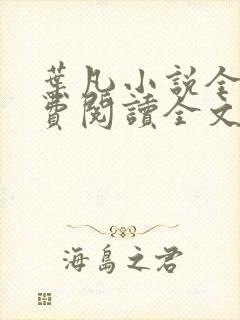 葉凡小說全
費閱讀全文
海島之君